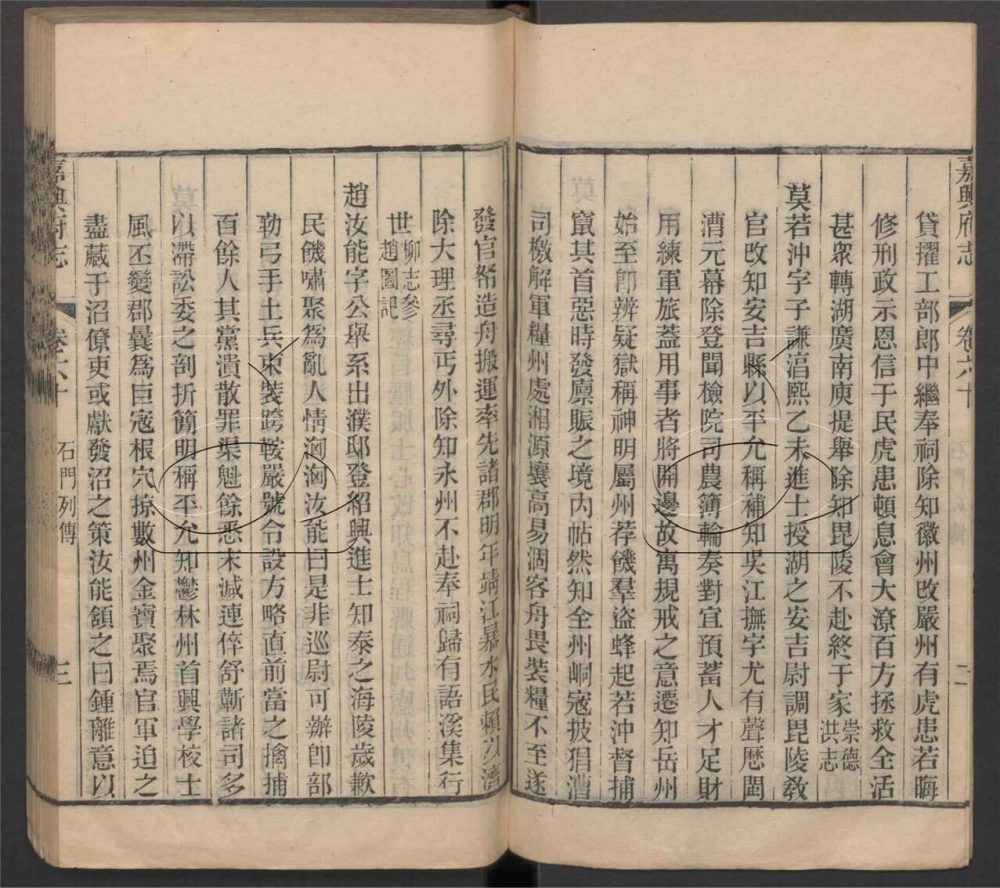 嘉興府志 卷六十 二
貸擢工部郎中繼奉祠除知徽州改嚴州有虎患若晦
修刑政示恩信于民虎患頓息會大潦百方拯救全活
甚衆轉湖廣南庾提舉除知毘陵不赴終于家崇德洪志
莫若沖字子謙淳熙乙未進士授湖之安吉尉調毘陵敎
官改知安吉縣以平允稱補知吳江撫字尤有聲歷閫
漕元幕除登聞檢院司農簿輪奏對宜預蓄人才足財
用練軍旅蓋用事者將開邊故寓規戒之意遷知岳州
始至卽辨疑獄稱神明屬州荐饑羣盜蜂起若沖督捕
竄其首惡時發廩賑之境內帖然知全州峒寇披猖漕
司檄解軍糧州處湘源壤高易涸客舟畏裝糧不至遂
發官帑造舟搬運率先諸郡明年靖江暴水民賴以濟
除大理丞尋丐外除知永州不赴奉祠歸有語溪集行
世柳志參趙圖記
趙汝能字公舉系出濮邸登紹興進士知泰之海陵歲歉
民饑嘯聚爲亂人情洶洶汝能曰是非巡尉可辦卽部
勒弓手土兵束裝跨鞍嚴號令設方略直前當之擒捕
百餘人其黨潰散罪渠魁餘悉末減連倅舒蘄諸司多
以滯訟委之剖折簡明稱平允知鬱林州首興學校士
風丕變郡曩爲巨寇根穴掠數州金寶聚焉官軍迫之
盡藏于沼僚吏或獻發沼之策汝能頷之曰鍾離意以
嘉興府志 卷六十 石門列傳 三